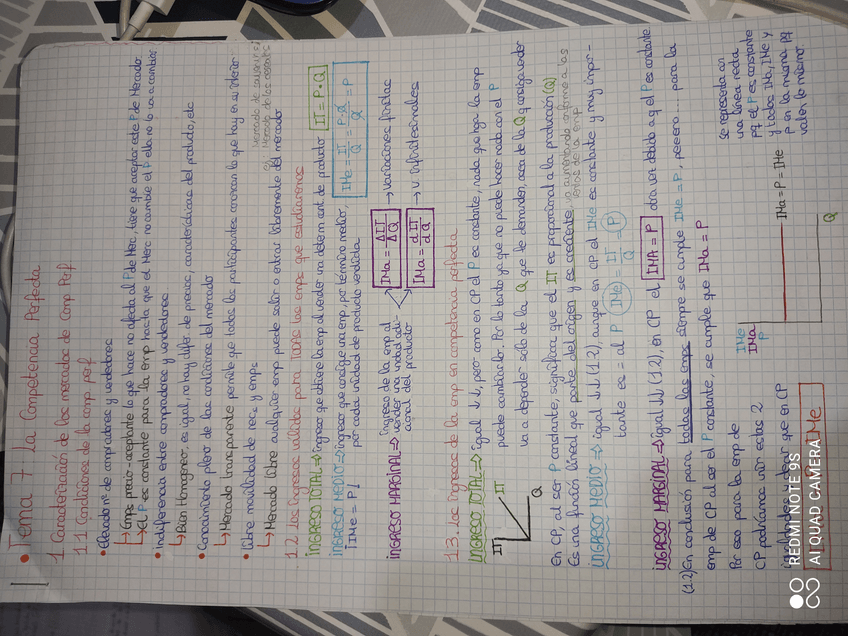 • Tema 7 La Competencia Perfecta
1 Caracterización de los mercados de Comp Perf
1.1 Condiciones de la comp perf
• Elevado nº de compradores y vendedores
↳ Emps precio-aceptante lo que hace no afecta al P de Merc, tiene que aceptar este P de Mercado
↳ El P es constante para la emp hasta que el Merc no cambie el P ella no lo va a cambiar
• Indiferencia entre compradores y vendedores
↳ Bien Homogéneo, es igual, no hay difer de precios, características del producto, etc
• Conocimiento pleno de las condiciones del mercado
↳ Mercado transparente permite que todos los participantes conozcan lo que hay en el
• Libre movilidad de recs y emps
↳ Mercado libre cualquier emp puede salir o entrar libremente del mercado
1.2 Los Ingresos válidos para TODAS las emps que estudiaremos
INGRESO TOTAL => ingreso que obtiene la emp al vender una determ cant de producto IT = P·Q
INGRESO MEDIO => ingreso que consigue una emp, por término medio, por cada unidad de producto vendida
IMe = IT/Q = P·Q/Q = P
IMe = P!
INGRESO MARGINAL => Ingreso de la emp al vender una unidad adicional del producto
IMa = ΔIT/ΔQ → variaciones finitas
IMa = dIT/dQ → v infinitesimales
1.3. Los ingresos de la emp en competencia perfecta
INGRESO TOTAL => igual ↓↓, pero como en CP el P es constante, nada que haga la emp
puede cambiarlo. Por lo tanto ya que no puede hacer nada con el P
va a depender solo de la Q que le demanden, acca de la Q q consiga vender
IT
IT
Q
En CP, al ser P constante, significa que el IT es proporcional a la producción (Q)
Es una función lineal que parte del origen y es creciente, va aumentando conforme a las
INGRESO MEDIO => igual ↓↓ (1.2), aunque en CP el IMe es constante y muy impor-
tante es = al P IMe = IT/Q = P
INGRESO MARGINAL => igual ↓↓ (1.2), en CP el IMA = P otra vez debido a q el P es constante
(1.2) En conclusión para todas las emps siempre se cumple IMe = P, peeero... para la
emp de CP al ser el P constante, se cumple que IMa = P
Por eso para la emp de
CP podríamos unir estas 2
que en CP
IMe
IMa
P
IMa = P = IMe
Q
se representa con
una línea recta
pq el P es constante
y todos IMa, IMe y
P en la misma pq
valen lo mismo.
REDMI NOTE 9S
AI QUAD CAMERA